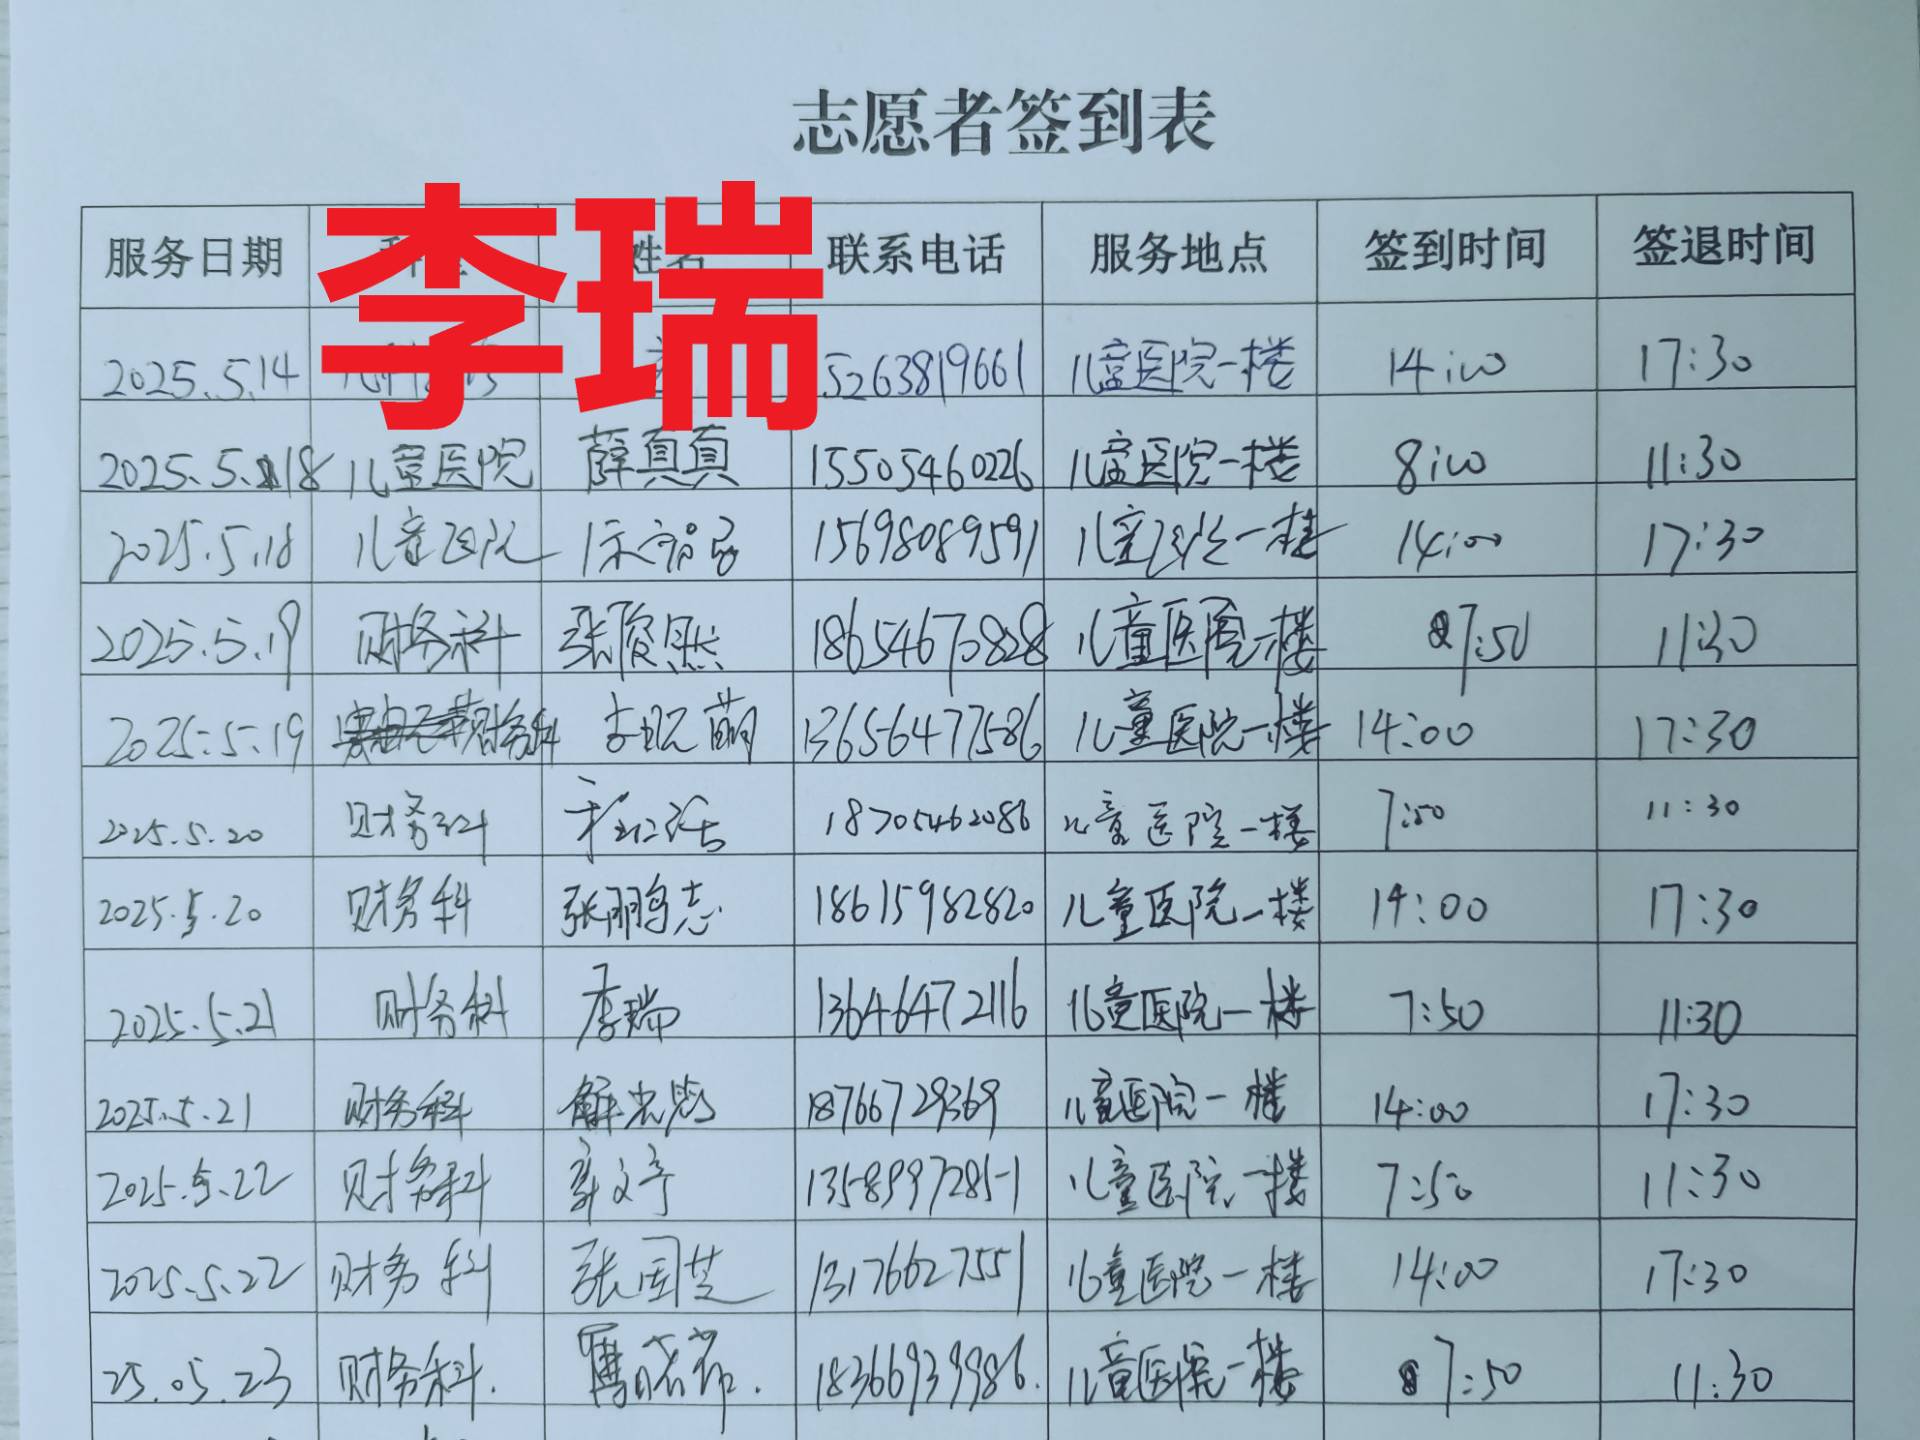 志愿者签到表
李瑞
服务日期 联系电话 服务地点 签到时间 签退时间
2025.5.14 5263819661 儿童医院一楼 14:00 17:30
2025.5.18 儿童医院 薛真真 15505460226 儿童医院一楼 8:00 11:30
2025.5.18 儿童医院 15698089591 儿童医院一楼 14:00 17:30
2025.5.19 财务科 张俊然 18654670828 儿童医院一楼 7:50 11:30
2025.5.19 财务科 萌 13656477586 儿童医院一楼 14:00 17:30
2025.5.20 财务科 18705462086 儿童医院一楼 7:50 11:30
2025.5.20 财务科 张鹏志 18615982820 儿童医院一楼 14:00 17:30
2025.5.21 财务科 李瑞 13646472116 儿童医院一楼 7:50 11:30
2025.5.21 财务科 解光 18766729369 儿童医院一楼 14:00 17:30
2025.5.22 财务科 13589972851 儿童医院一楼 7:50 11:30
2025.5.22 财务科 张国芝 13176627551 儿童医院一楼 14:00 17:30
25.05.23 财务科. 18366939986. 儿童医院一楼 7:50 11:30